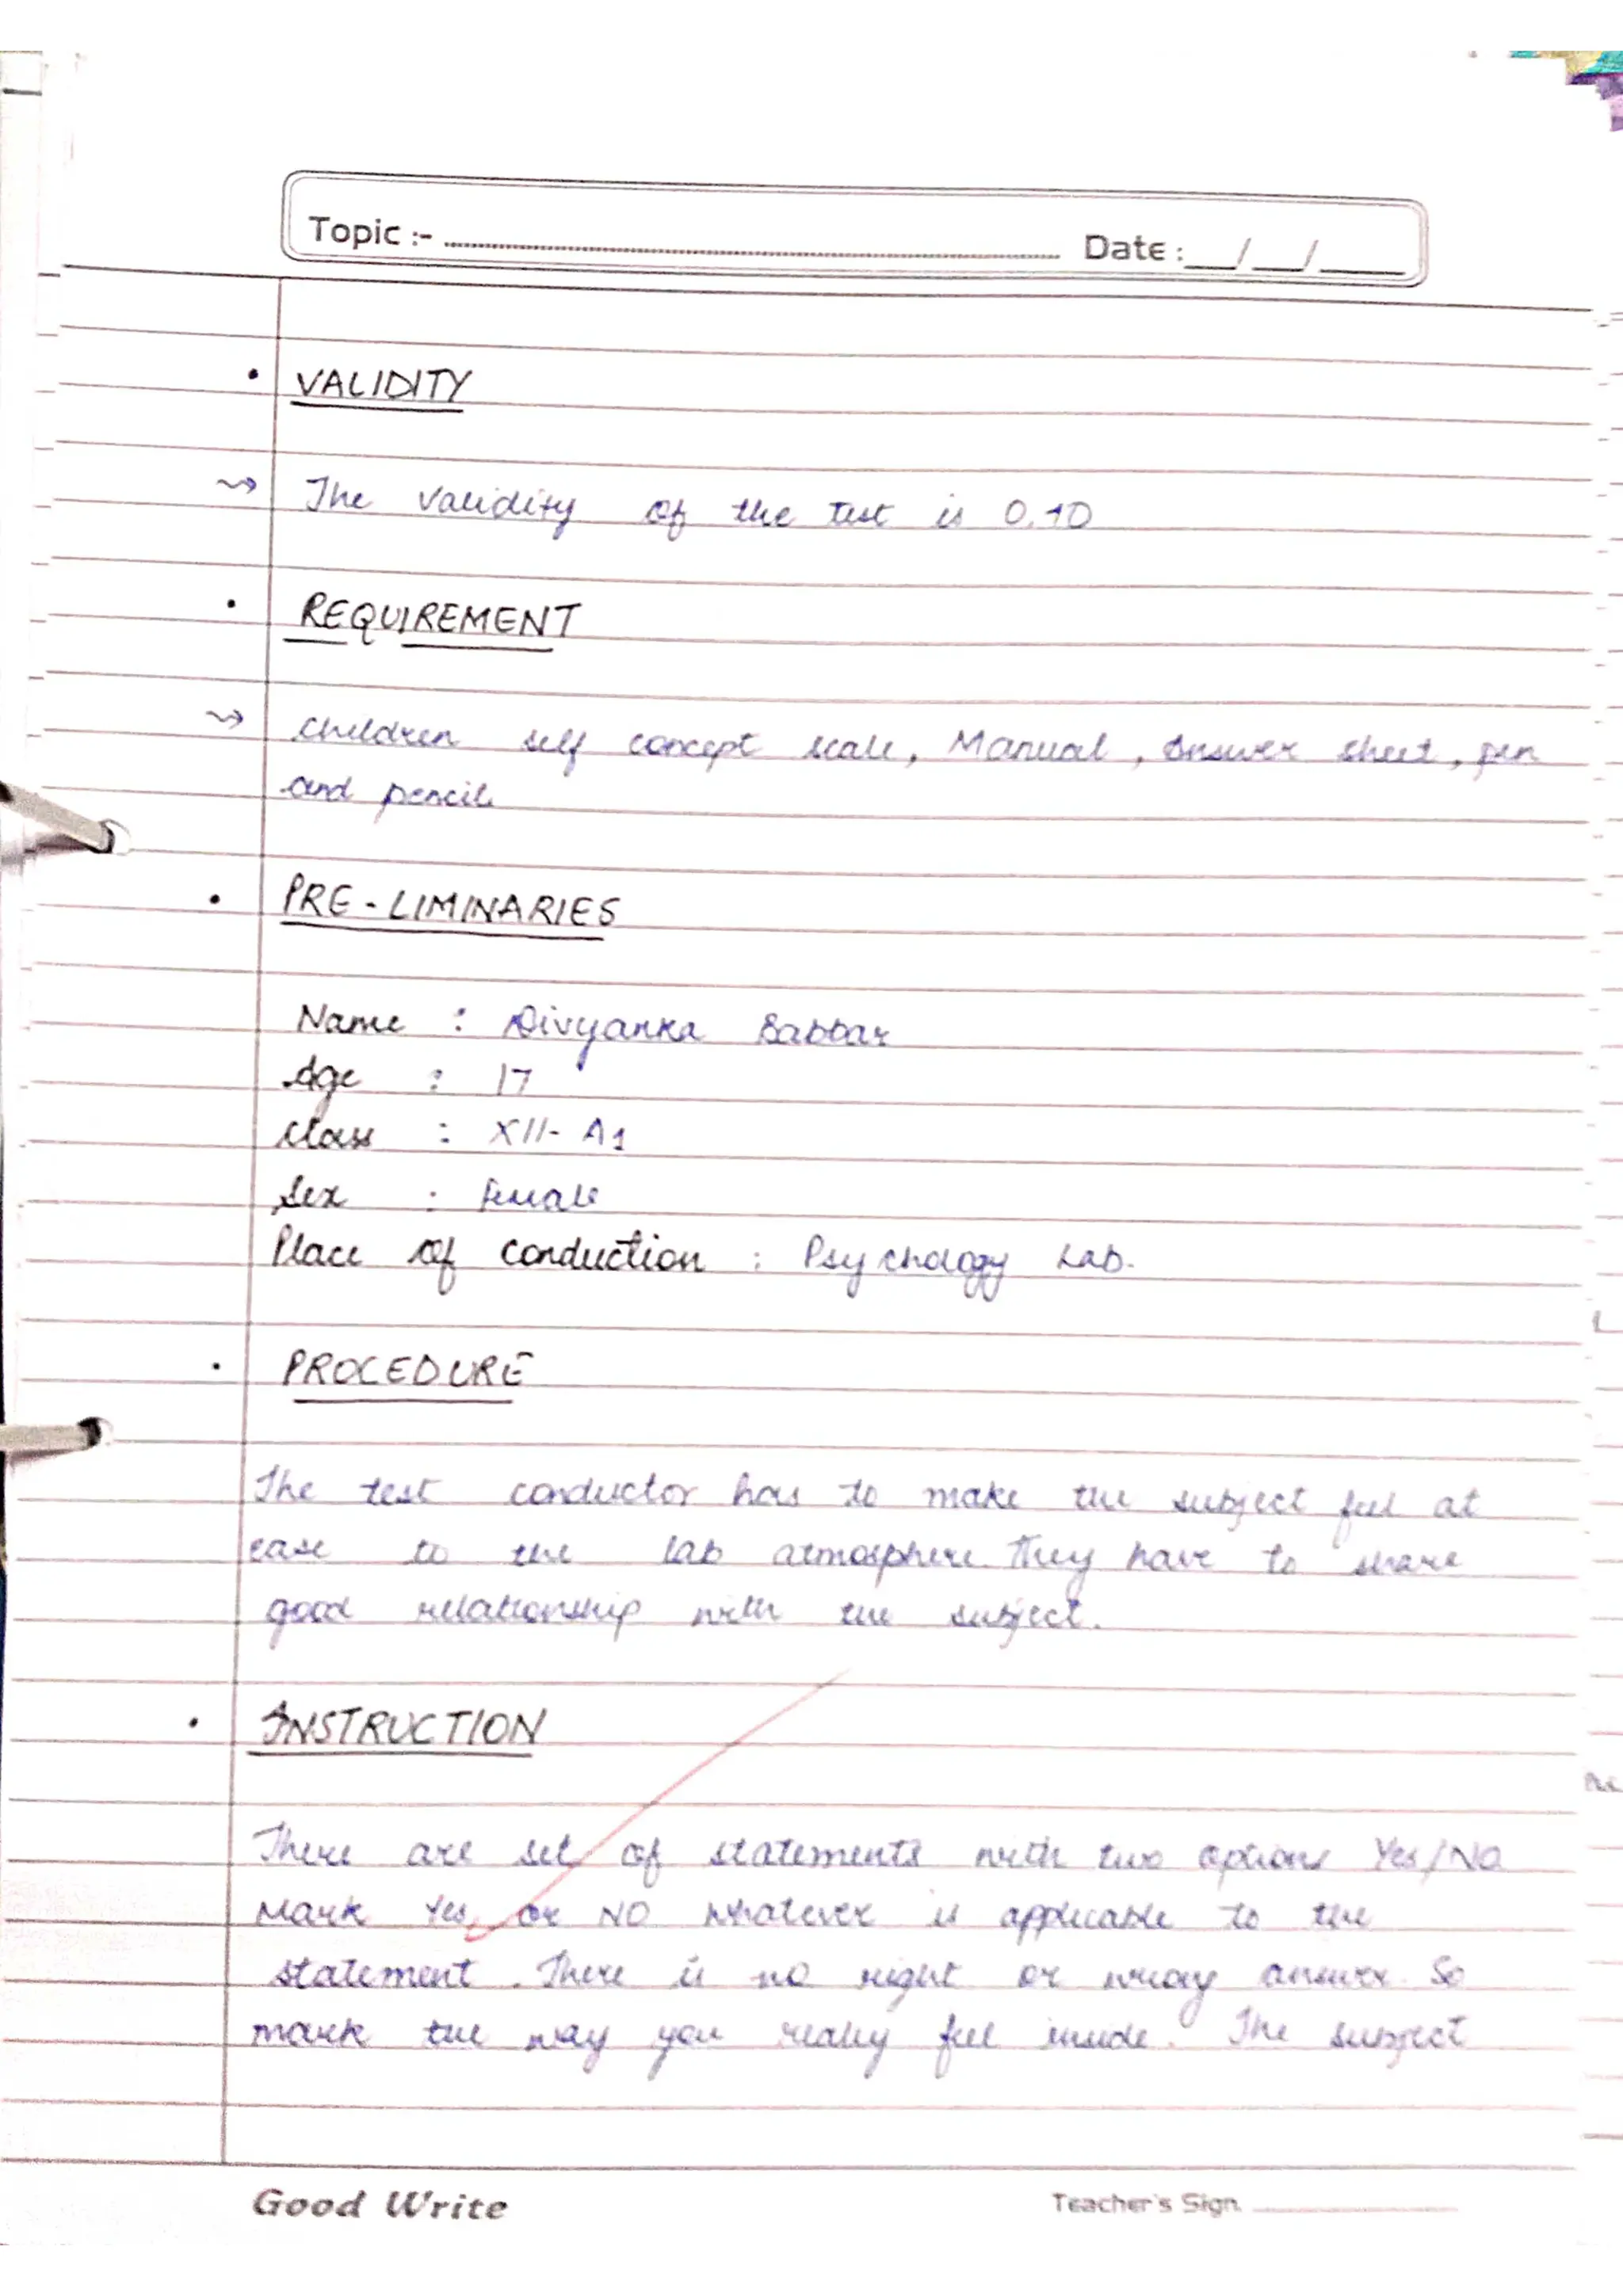 Topic :- Date : __/__/____
• VALIDITY
⇝ The validity of the test is 0.10
• REQUIREMENT
⇝ children self concept scale, Manual, Answer sheet, pen
and pencil
• PRE-LIMINARIES
Name : Divyanka Babbar
Age : 17
class : XII- A1
Sex : Female
Place of conduction : Psychology Lab.
• PROCEDURE
The test conductor has to make the subject feel at
ease to the lab atmosphere. They have to share
good relationship with the subject.
• INSTRUCTION
There are set of statements with two options Yes/No
Mark Yes or NO whatever is applicable to the
statement. There is no right or wrong answer. So
mark the way you really feel inside. The subject
Good Write Teacher's Sign.